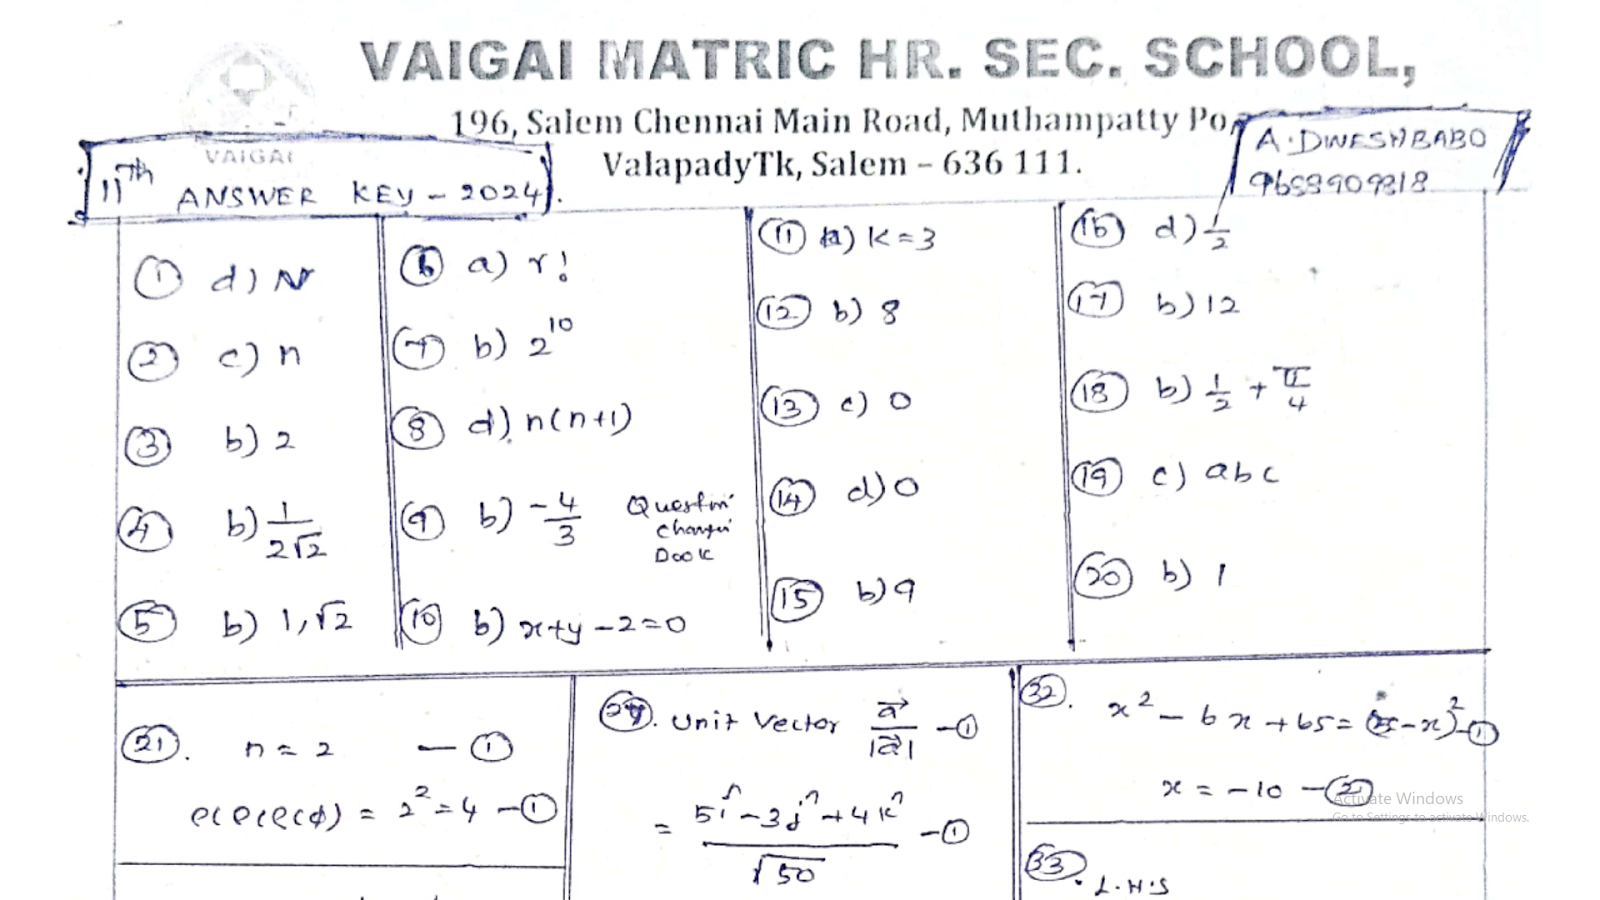 VAIGAI MATRIC HR. SEC. SCHOOL,
196, Salem Chennai Main Road, Muthampatty Po,
ValapadyTk, Salem – 636 111.
VAIGAI
11th ANSWER KEY – 2024.
A. DINESHBABO
9658909818
① d) N
② c) n
③ b) 2
④ b) 1/2√2
⑤ b) 1, √2
⑥ a) r!
⑦ b) 2^10
⑧ d) n(n+1)
⑨ b) -4/3
⑩ b) x+y-2=0
⑪ a) k=3
⑫ b) 8
⑬ c) 0
⑭ d) 0
⑮ b) 9
⑯ d) 1/2
⑰ b) 12
⑱ b) 1/2 + π/4
⑲ c) abc
⑳ b) 1
㉑. n = 2 — ①
= 2² = 4 – ①
Unit Vector a⃗/|a⃗| – ①
= 5î - 3ĵ + 4k̂ / √50 – ①
㉜. x² - 6x + 65 = ( -x)² – ①
x = -10 – ②
㉝. L.H.S
Activate Windows
Go to Settings to activate Windows.